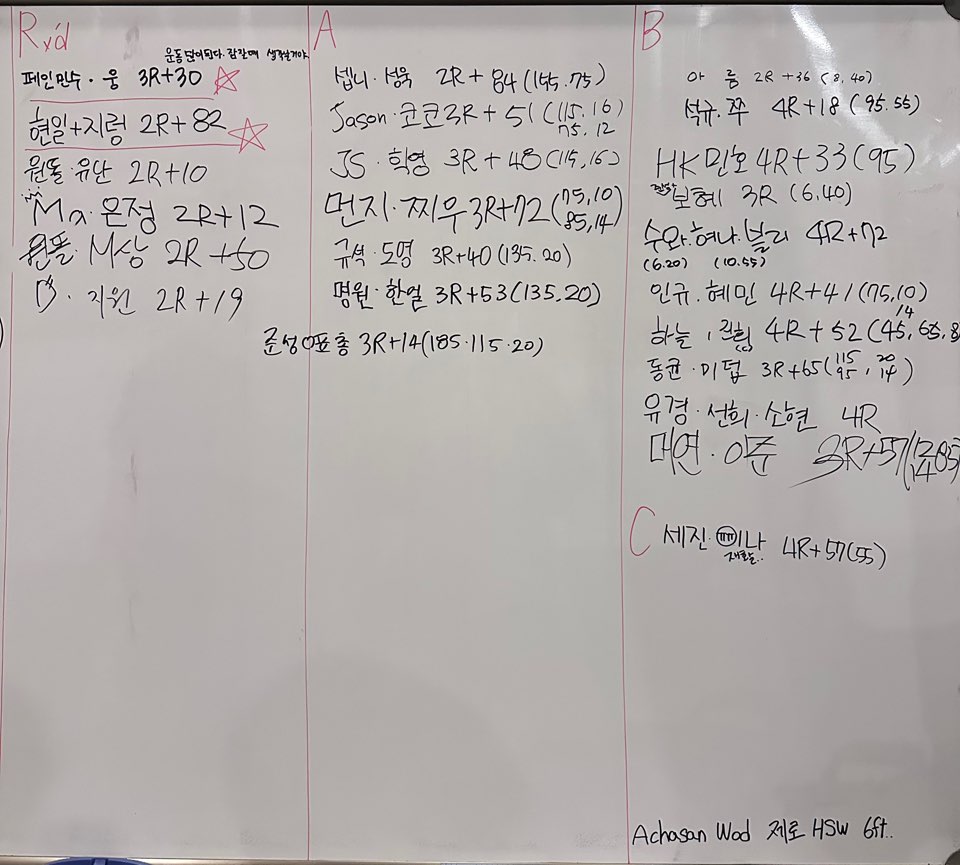 Rx'd
운동 단어된다. 잠잘때 생각날거야
페인민수·웅 3R+30
현일+지렁 2R+82
원돌·유난 2R+10
Ma·은정 2R+12
원돌·M상 2R+50
지원 2R+19
A
셉니·성욱 2R+84(155.75)
Jason·코코 3R+51(115,16)
75,12
JS·희영 3R+48(115,16)
먼지·찌우 3R+72(75,10)
85,14
규석·도영 3R+40(135.20)
명원·한얼 3R+53(135.20)
준성 표총 3R+14(185·115·20)
B
아름 2R+36(8,40)
석규·쭈 4R+18(95.55)
HK민호 4R+33(95)
보혜 3R(6,40)
수와·혀나·블리 4R+72
(6.20) (10.55)
인규·혜민 4R+41(75,10)
14
하늘, 4R+52(45,65,8
동균·미텁 3R+65(115 20
95, 14)
유경·선희·소현 4R
대연·이준 3R+57
C
세진·미나 4R+57(55)
Achasan Wod 제로 HSW 6ft..